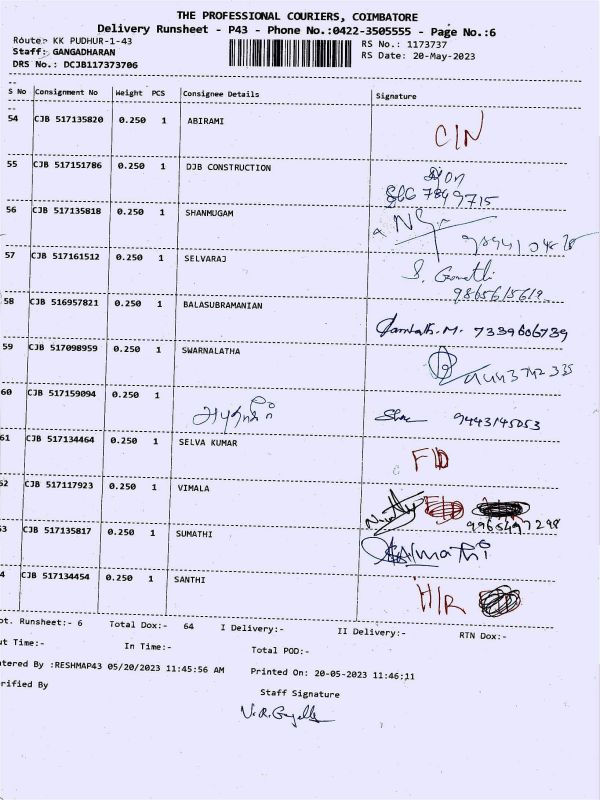 THE PROFESSIONAL COURIERS, COIMBATORE
Delivery Runsheet - P43 - Phone No.:0422-3505555 - Page No.:6
Route: KK PUDHUR-1-43 RS No.: 1173737
Staff: GANGADHARAN RS Date: 20-May-2023
DRS No.: DCJB117373706
S No Consignment No Weight PCS Consignee Details Signature
54 CJB 517135820 0.250 1 ABIRAMI C/N
55 CJB 517151786 0.250 1 DJB CONSTRUCTION
7849715
56 CJB 517135818 0.250 1 SHANMUGAM
57 CJB 517161512 0.250 1 SELVARAJ
9865615619
58 CJB 516957821 0.250 1 BALASUBRAMANIAN
M. 7339606739
59 CJB 517098959 0.250 1 SWARNALATHA
60 CJB 517159094 0.250 1
9443145053
61 CJB 517134464 0.250 1 SELVA KUMAR F/D
62 CJB 517117923 0.250 1 VIMALA
9965497298
53 CJB 517135817 0.250 1 SUMATHI
4 CJB 517134454 0.250 1 SANTHI H/R
ot. Runsheet:- 6 Total Dox:- 64 I Delivery:- II Delivery:- RTN Dox:-
ut Time:- In Time:- Total POD:-
ntered By :RESHMAP43 05/20/2023 11:45:56 AM Printed On: 20-05-2023 11:46:11
rified By Staff Signature